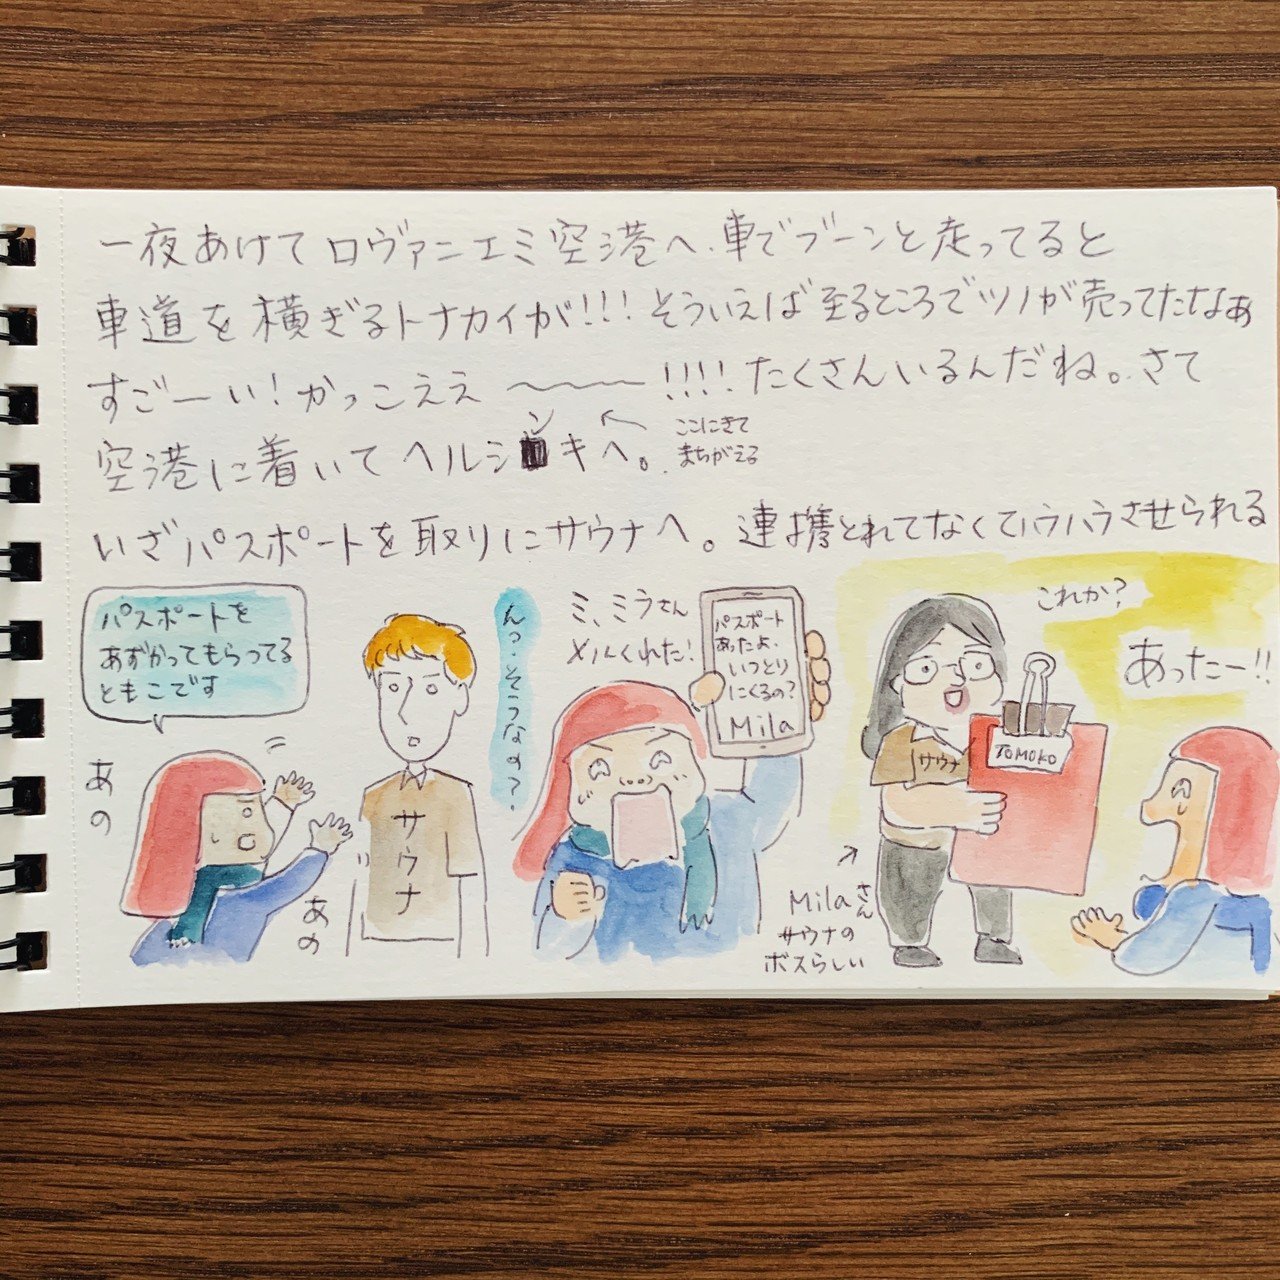 一夜あけてロヴァニエミ空港へ、車でブーンと走ってると
車道を横ぎるトナカイが!!! そういえば至るところでツノが売ってたなぁ
すごーい!かっこええ〜〜〜!!!! たくさんいるんだね。さて
空港に着いてヘルシンキへ。
ここにきて
まちがえる
いざパスポートを取りにサウナへ。連携とれてなくてハラハラさせられる
パスポートを
あずかってもらってる
ともこです
あの
あの
サウナ
んっ?そうなの?
ミ、ミラさん
メルくれた!
パスポート
あったよ、
いつとり
にくるの?
Mila
これか?
あったー!!
サウナ
TOMOKO
Milaさん
サウナの
ボスらしい